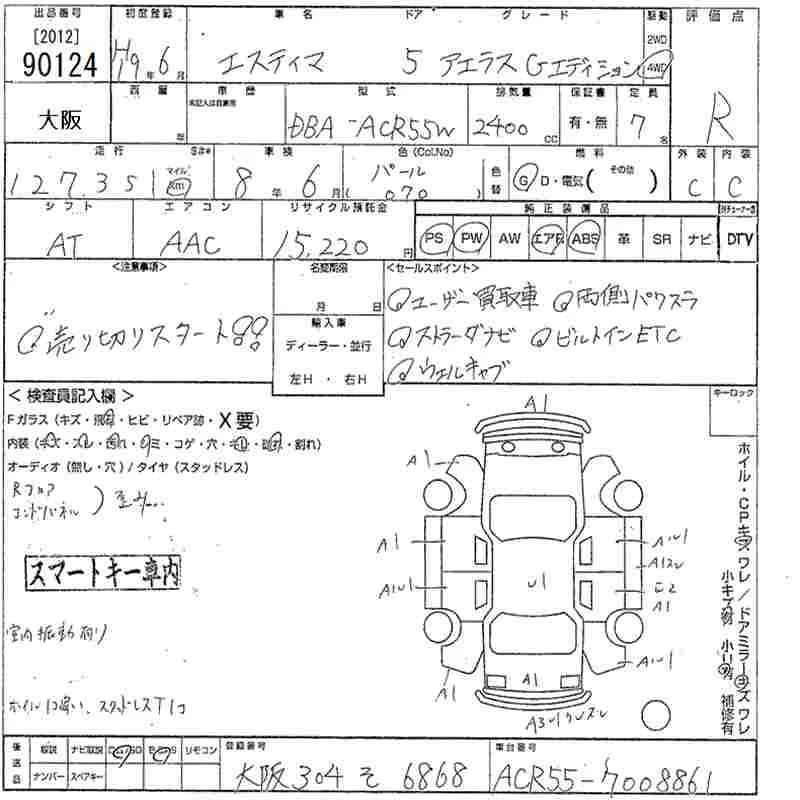 出品番号 初度登録 車名 ドア グレード 駆動 評価点
[2012]
90124 H19年6月 エスティマ 5 アエラス Gエディション 2WD 4WD R
大阪 西暦 年 車歴 未記入は自家用 型式 DBA-ACR55W 排気量 2400 CC 保証書 有・無 定員 7名
走行 車検 色(Col.No) 色替 燃料 外装 内装
127,351 マイル Km 8年6月 パール (070) G D・電気( その他 ) C C
シフト エアコン リサイクル預託金 純正装備品
AT AAC 15,220円 PS PW AW エアB ABS 革 SR ナビ DTV
<注意事項> 名変期限 <セールスポイント>
月 日
◎売り切りスタート!!
輸入車
ディーラー・並行
左H ・ 右H
◎ユーザー買取車 ◎両側パワスラ
◎ストラーダナビ ◎ビルトインETC
◎ウェルキャブ
キーロック
< 検査員記入欄 >
Fガラス(キズ・飛石・ヒビ・リペア跡・X要)
オーディオ(無し・穴)/タイヤ(スタッドレス)
Rフロア
エンドパネル
スマートキー車内
室内振動有り
A1
A1
A1
A1
U1
A1
A1
A1
ホイル・CPキズワレ/ドアミラーキズワレ
補修有
後送品 取説 ナビ取説 リモコン 登録番号 車台番号
ナンバー スペアキー 大阪 304 そ 6868 ACR55-7008861